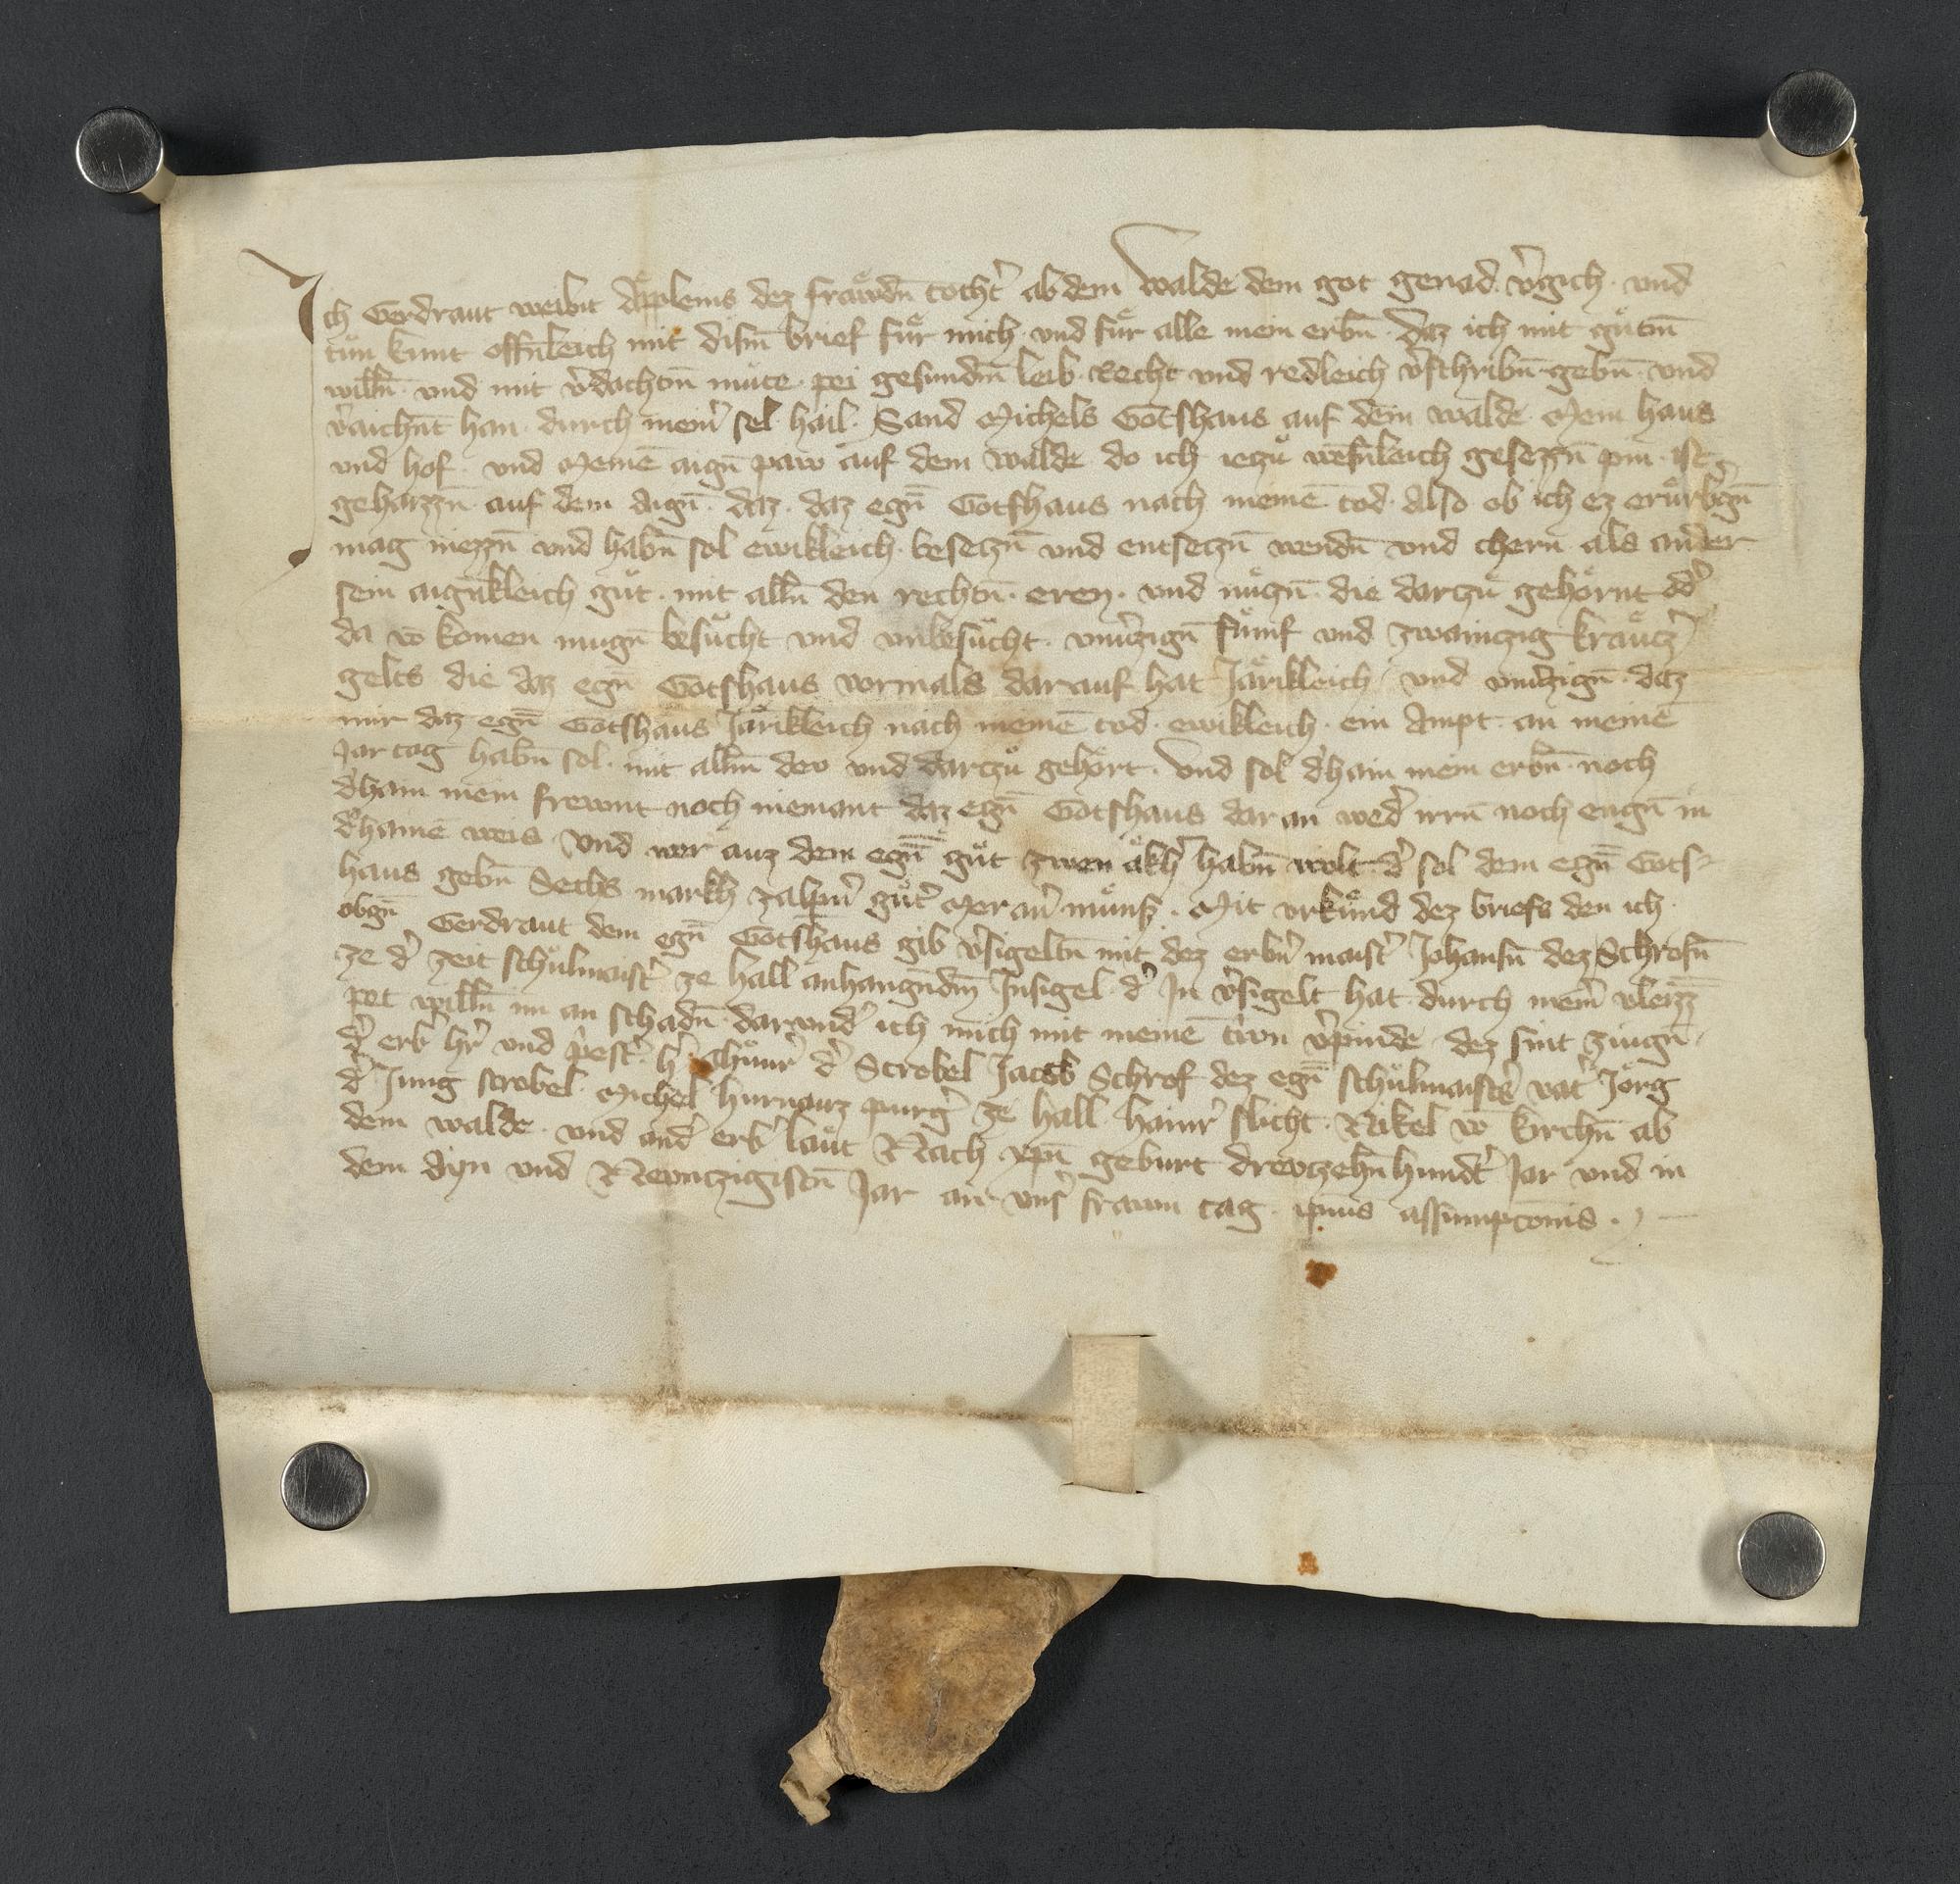 Ich Gerdraut weilnt Äpleins dez fraẘdn̄ tocht͛ ab dem Walde dem got genad. v͛gich. und
tůn kunt offn̄leich mit dism̄ brief fuͤr mich. und fuͤr alle mein erbn̄. Daz ich mit guͤtm̄
willn̄. und mit v͛dachtm̄ můte. pei gesundm̄ leib. Recht und redleich v͛schribn̄. gebn̄. und
v͛aichn̄t han. durch mein͛ sel hail. Sand Michels Gotshaus auf dem walde. Mein haus
und hof. und Meinē aign̄ paw auf dem walde do ich ieczů wēsn̄leich gesezzn̄ pin. ist
gehaizzn̄. auf dem Aign̄. Daz. daz egn̄ Gotshaus nach meinē tod. Also ob ich ez eruͤbrign̄
mag niezzn̄ und habn̄ sol ewikleich. besetzn̄ und entsetzn̄ wendn̄ und chern̄ als ander
sein aign̄kleich gůt. mit alln̄ den rechtn̄. eren. und nuͤczn̄. die darzů gehoͤrnt od͛
da vō komen mugn̄ besůcht und unbesůcht. unv͛zign̄ fuͤmf und zwainczig kraͤucz͛
gelts die daz egn̄ Gotshaus vormals darauf hat Jaͤrikleich. und unv͛zign̄. daz
mir daz egn̄ Gotshaus Jaͤrikleich nach meinē tod. ewikleich. ein Ampt. an meinē
Jartag habn̄ sol. mit allm̄ dev und darzů gehoͤrt. Und sol d͛hain mein erbn̄. noch
d͛hain mein frewnt noch niemant daz egn̄ Gotshaus daran wed͛ irrn̄ noch engn̄ in
d͛hainē weis. Und wer auz dem egn̄ gůt zwen aͤkh͛ habn̄ wolt. d͛ sol dem egn̄ Gots⸗
haus gebn̄ Sechs markh zalpn͛ gůt͛ Meran͛ muͤnss. Mit urkuͤnd dez briefs den ich
obgn̄ Gerdraut dem egn̄ Gotshaus gib v͛sigeltn̄ mit dez erbn͛ maist͛ Johansn̄ dez Schrofn̄
ze d͛ zeit schůlmaist͛ ze hall anhangn̄dm̄ Insigel. d͛ In v͛sigelt hat. durch mein͛ vleizz̄
pet willn̄ im an schadn̄. darund͛ ich mich mit meinē trwn v͛pinde. dez sint zuign̄.
d͛ erb͛ hr͛ und p͛est͛. h͛ Chuͦnr͛ d͛ Strobel Jacob Schrof dez egn̄ schůlmaist͛s vat͛ Joͤrg
d͛ Jung strobel. Michel hurnauz purg͛ ze hall. hainr͛ slicht. Nikel vō kirchn̄ ab
dem walde. und and͛ erb͛ laͤut. Nach xp̄n geburt drewzehn̄hundt͛ Jar und in
dem Ayn und Newnczigistn̄ Jar an uns͛ frawn tag. ip̄ius assumpc̄onis.